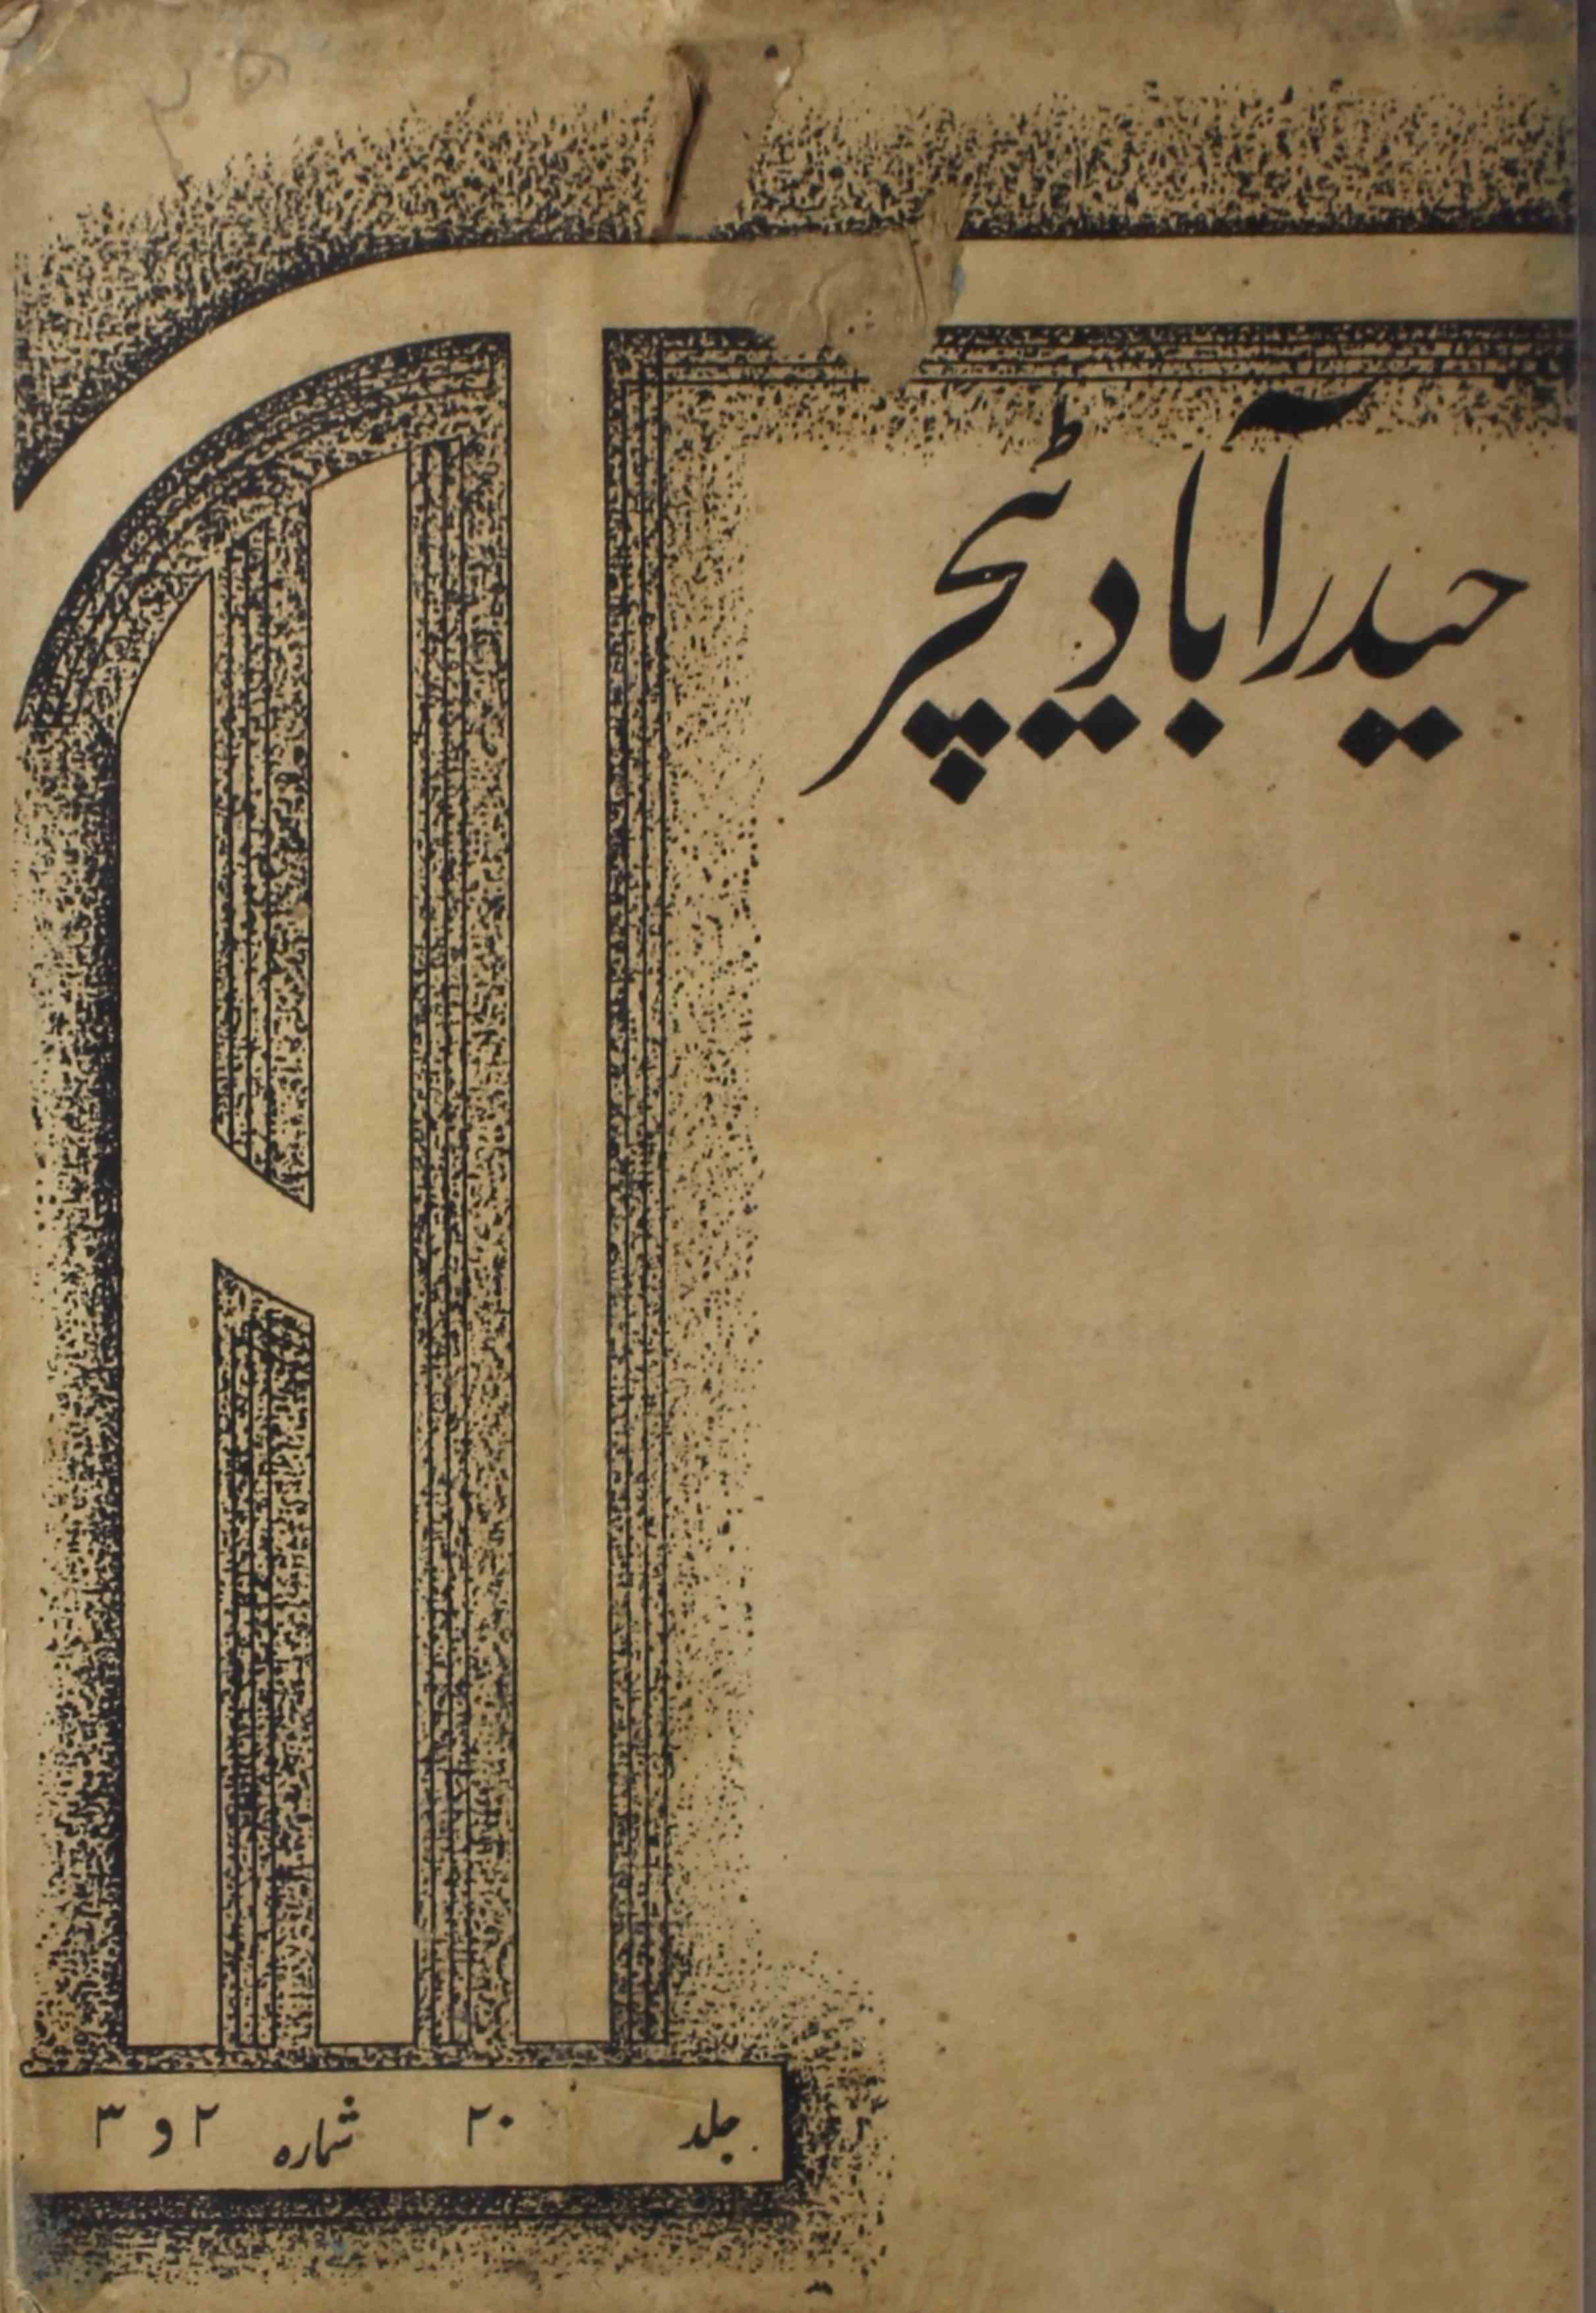 حیدرآباد ٹیچر
جلد ۲۰ شمارہ ۲ و ۳